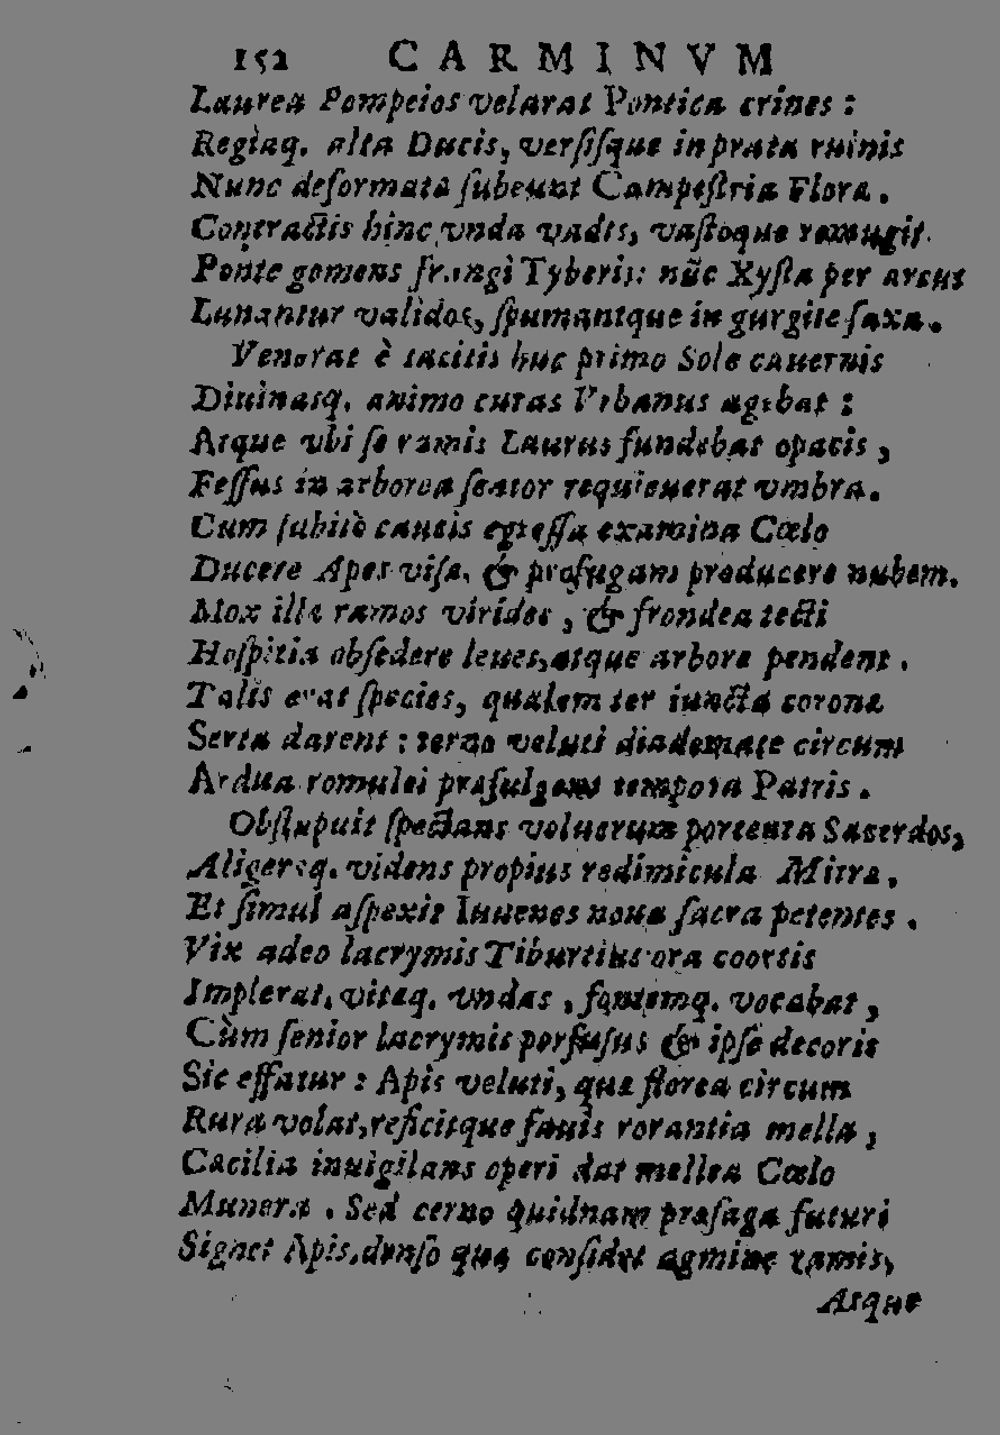 152 CARMINVM
Laurea Pompeios velarat Pontica crines :
Regiaq. alta Ducis, versisque in prata ruinis
Nunc deformata subeunt Campestria Flora.
Contractis hinc vnda vadis, vastoque remugit
Ponte gemens frangi Tyberis: nūc Xysta per arcus
Lunantur validos, spumantque in gurgite saxa.
Venerat è tacitis huc primo Sole cauernis
Diuinasq. animo curas Vrbanus agebat :
Atque vbi se ramis Laurus fundebat opacis ,
Fessus in arborea senior requieuerat vmbra.
Cum subitò caueis egressa examina Cœlo
Ducere Apes visa, & profugam producere nubem.
Mox illæ ramos virides , & frondea tecti
Hospitia obsedere leues, atque arbore pendent .
Talis erat species, qualem ter iuncta corona
Serta darent : terno veluti diademate circum
Ardua romulei præfulgens tempora Patris .
Obstupuit spectans volucrum portenta Sacerdos,
Aligeraq. videns propius redimicula Mitra,
Et simul aspexit Iuuenes noua sacra petentes .
Vix adeo lacrymis Tiburtius ora coortis
Implerat, vitaq. vndas , fontemq. vocabat ,
Cùm senior lacrymis perfusus & ipse decoris
Sic effatur : Apis veluti, quæ florea circum
Rura volat, reficitque fauis rorantia mella ,
Cæcilia inuigilans operi dat mellea Cœlo
Munera . Sed cerno quidnam præsaga futuri
Signet Apis, denso quæ considet agmine ramis,
Atque